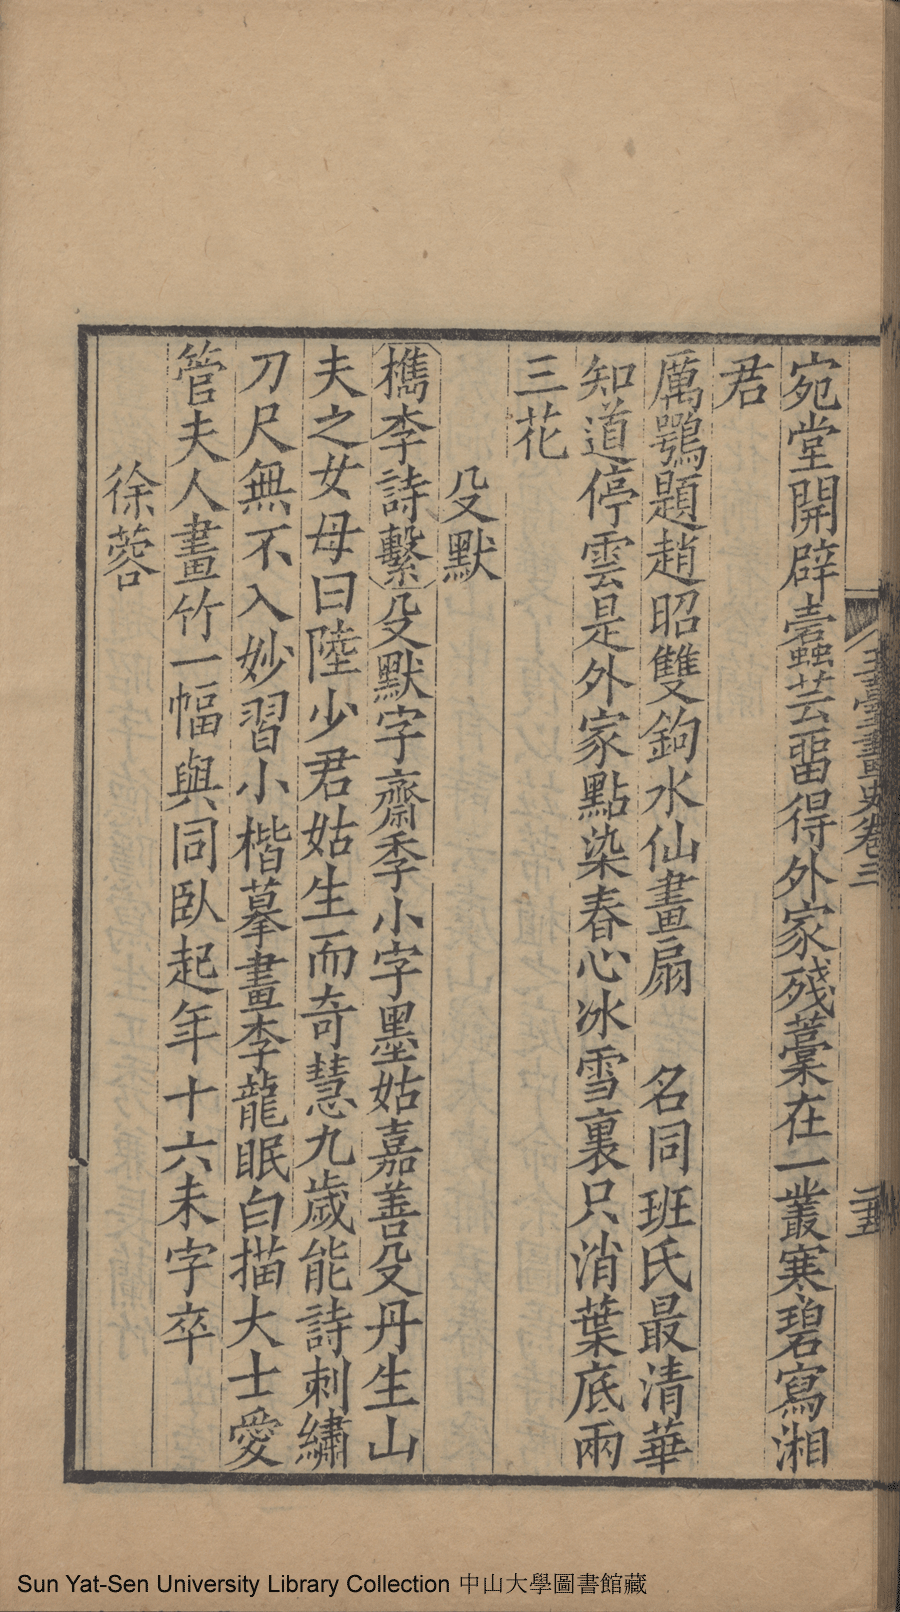 玉臺畫史卷三
二十五
宛堂開辟蠹芸畱得外家殘藁在一叢寒碧寫湘
君
厲鶚題趙昭雙鉤水仙畫扇　名同班氏最清華
知道停雲是外家點染春心冰雪裏只消葉底兩
三花
殳默
檇李詩繫殳默字齋季小字墨姑嘉善殳丹生山
夫之女母曰陸少君姑生而奇慧九歲能詩刺繡
刀尺無不入妙習小楷摹畫李龍眠白描大士愛
管夫人畫竹一幅與同臥起年十六未字卒
徐蓉
Sun Yat-Sen University Library Collection 中山大學圖書館藏